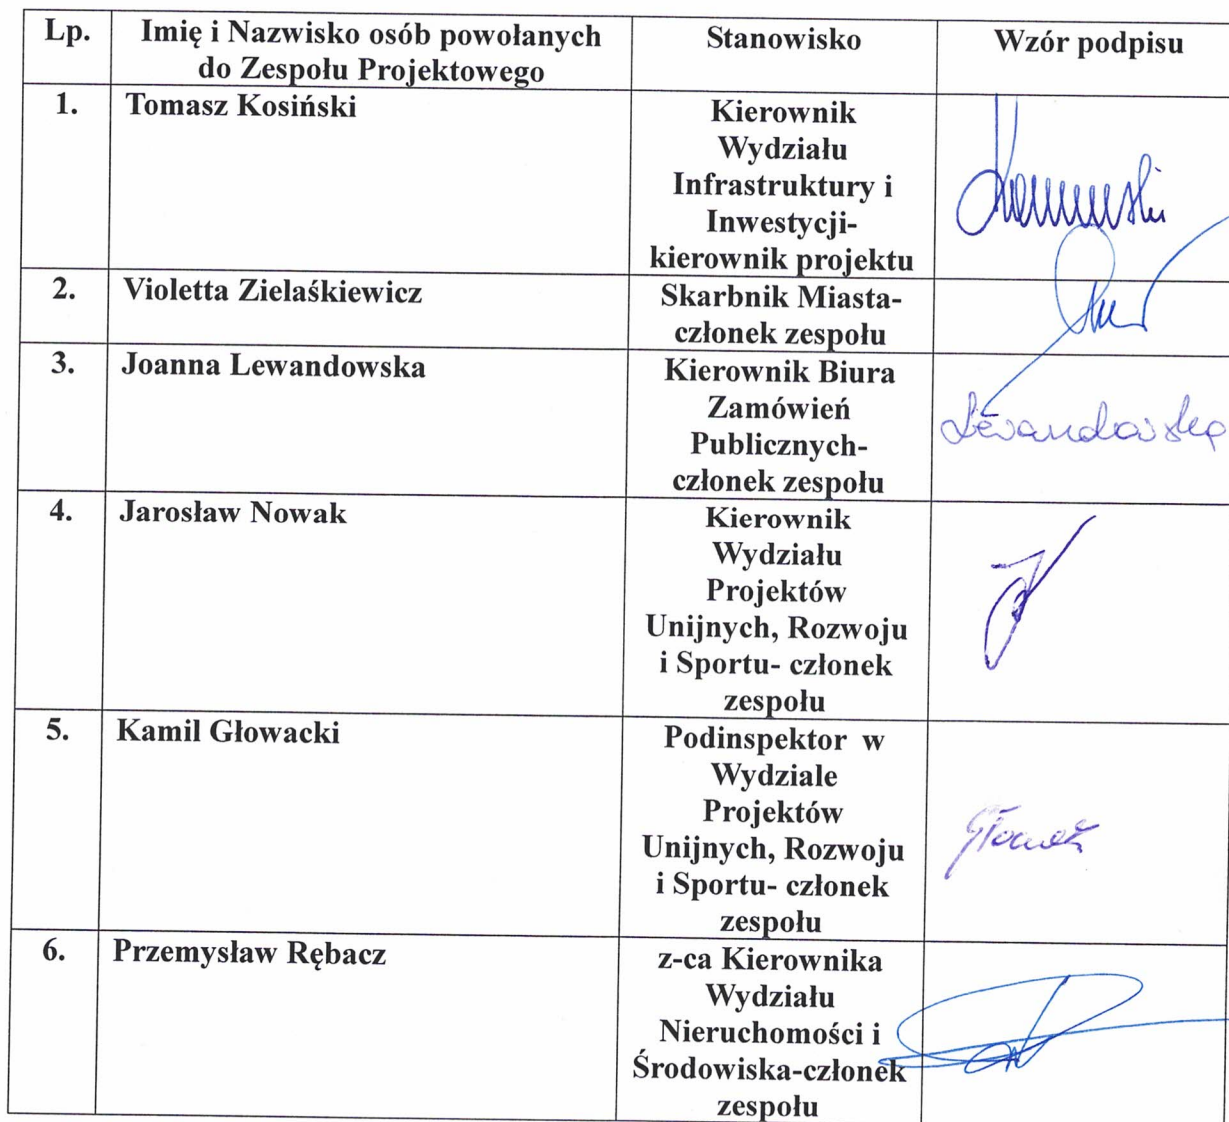 Lp.
Imię i Nazwisko osób powołanych
do Zespołu Projektowego
Stanowisko
Wzór podpisu
1.
Tomasz Kosiński
Kierownik
Wydziału
Infrastruktury i
Inwestycji-
kierownik projektu
2.
Violetta Zielaśkiewicz
Skarbnik Miasta-
członek zespołu
3.
Joanna Lewandowska
Kierownik Biura
Zamówień
Publicznych-
członek zespołu
Lewandowska
4.
Jarosław Nowak
Kierownik
Wydziału
Projektów
Unijnych, Rozwoju
i Sportu- członek
zespołu
5.
Kamil Głowacki
Podinspektor w
Wydziale
Projektów
Unijnych, Rozwoju
i Sportu- członek
zespołu
6.
Przemysław Rębacz
z-ca Kierownika
Wydziału
Nieruchomości i
Środowiska-członek
zespołu